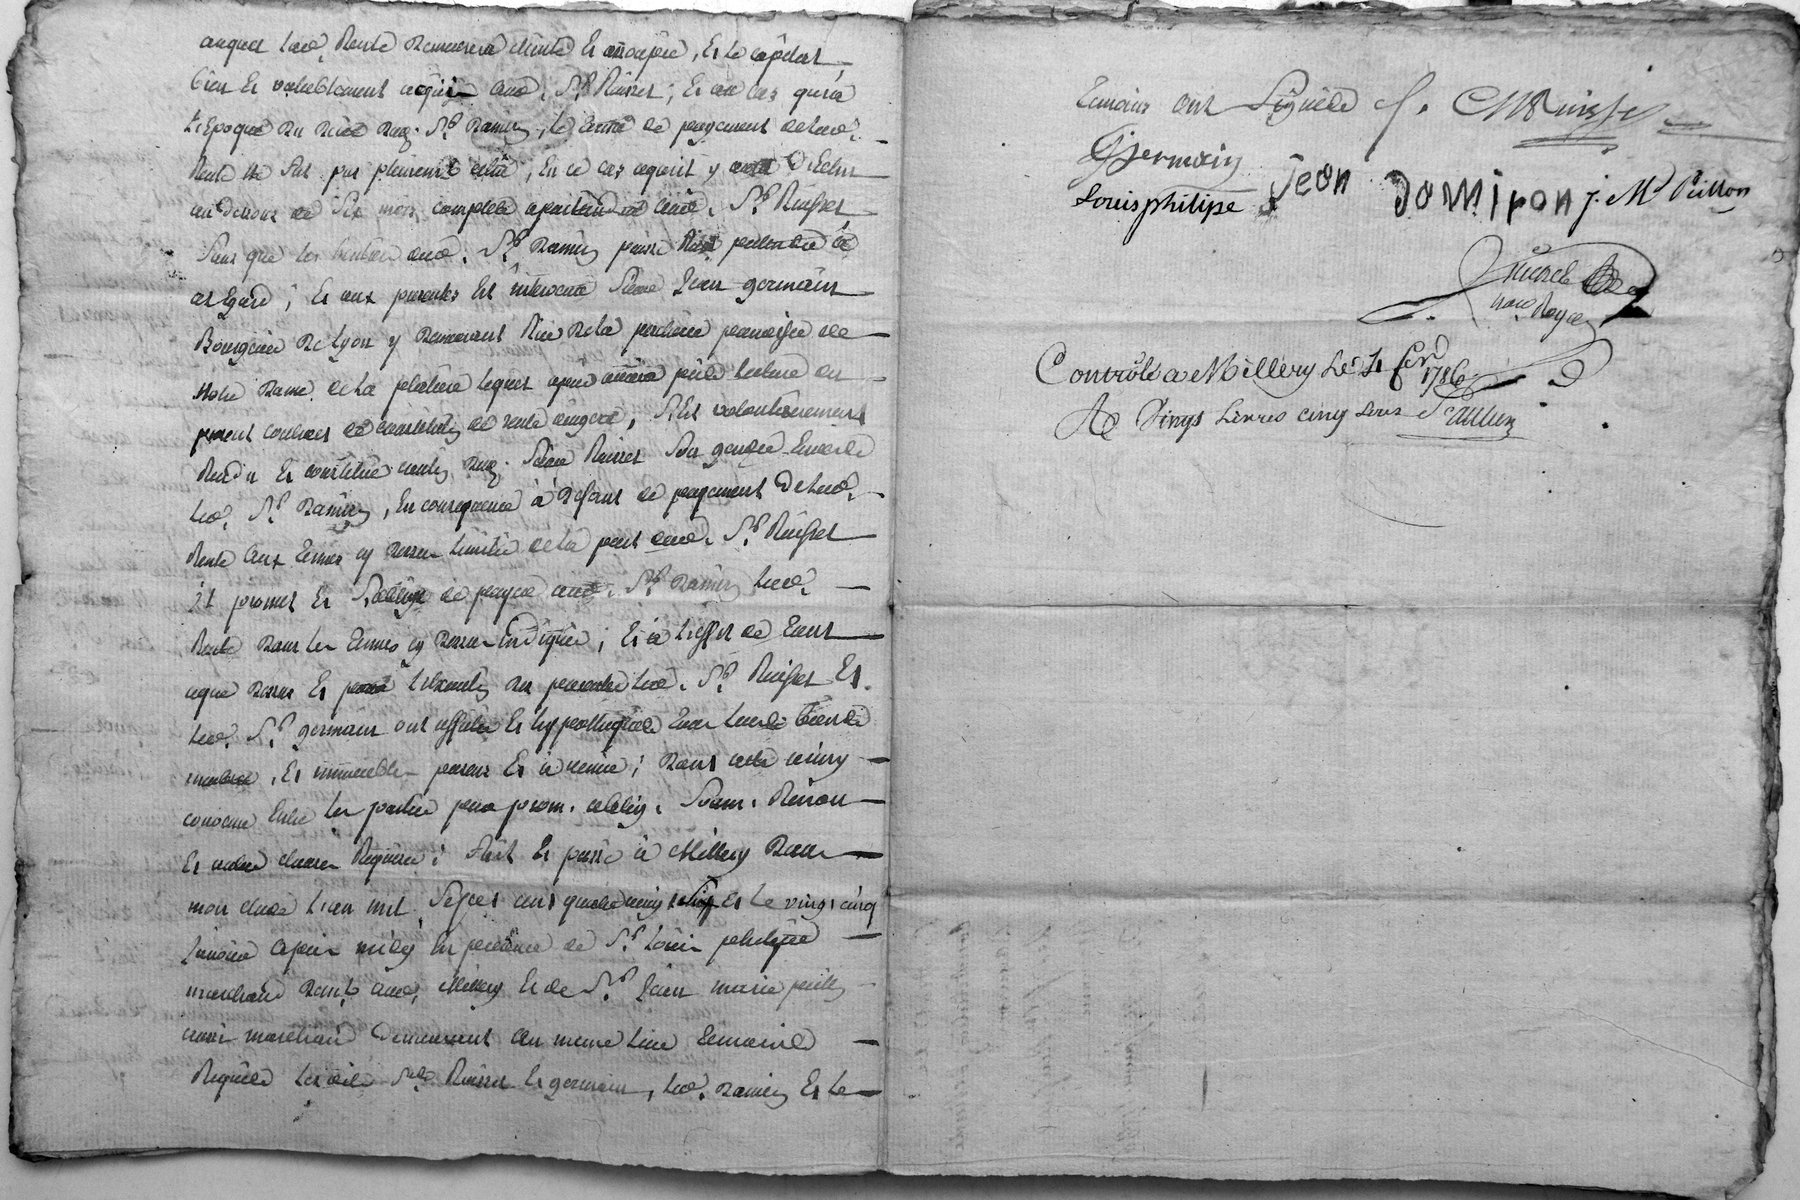 auquel lad. Rente demeurera éteinte et assoupie, Et le capital
bien Et valablement acquis aud. Sr. Ruisset; Et au cas qu'a
L'Epoque du déces dud. Sr. Damiron, le terme de payement de lad.
Rente ne fut pas pleinement échu, En ce cas ce qui y aura D'echu
au dessous de Six mois complets apartiendra aud. Sr. Ruisset
Sans que les heritiers dud. Sr. Damiron puisse Rien pretendre à
cet Egard; Et aux presentes Est intervenu Sieur Jean germain
Bourgeois De Lyon y Demeurant Rue De la paroisse de
Notre Dame de La platiere lequel après avoir pris lecture du
present contrat de constitution de rente viagere, S'est volontairement
Rendu Et constitué caution dud. Sieur Ruisset Son gendre Envers
led. Sr. Damiron, En consequence à Defaut de payement De lad.
Rente aux termes cy dessus de la part dud. Sr. Ruisset
il promet Et S'oblige de payer aud. Sr. Damiron lad.
Rente dans les termes cy dessus indiqués; Et à L'effet de tout
ce que dessus Et pour L'Execution des presentes led. Sr. Ruisset Et
led. Sr. germain ont affecté Et hypothequé tous leurs biens
meubles, Et immeubles presens Et à venir; Dont acte ainsy
convenu Entre les parties par prom. oblig. Soum. Renon
Et autres clauses Requises; Fait Et passé à Millery Dans
mon etude L'an mil Sept cent quatre vingt six Et le vingt cinq
Janvier après midy En presence de Sr. Louis philipe
marchand Demt. aud. Millery Et de Sr. Jean marie pitton
aussi marchand Demeurant au meme lieu temoins
Requis Lesdits Srs. Ruisset Et germain, led. Damiron Et les
temoins ont Signés /. CM Ruisset
Germain
Louis philipe Jean Damiron j. M Pitton
nore. Royal
Controlé a Millery Le 4 fevr. 1786
Re Vingt Livres cinq Sous